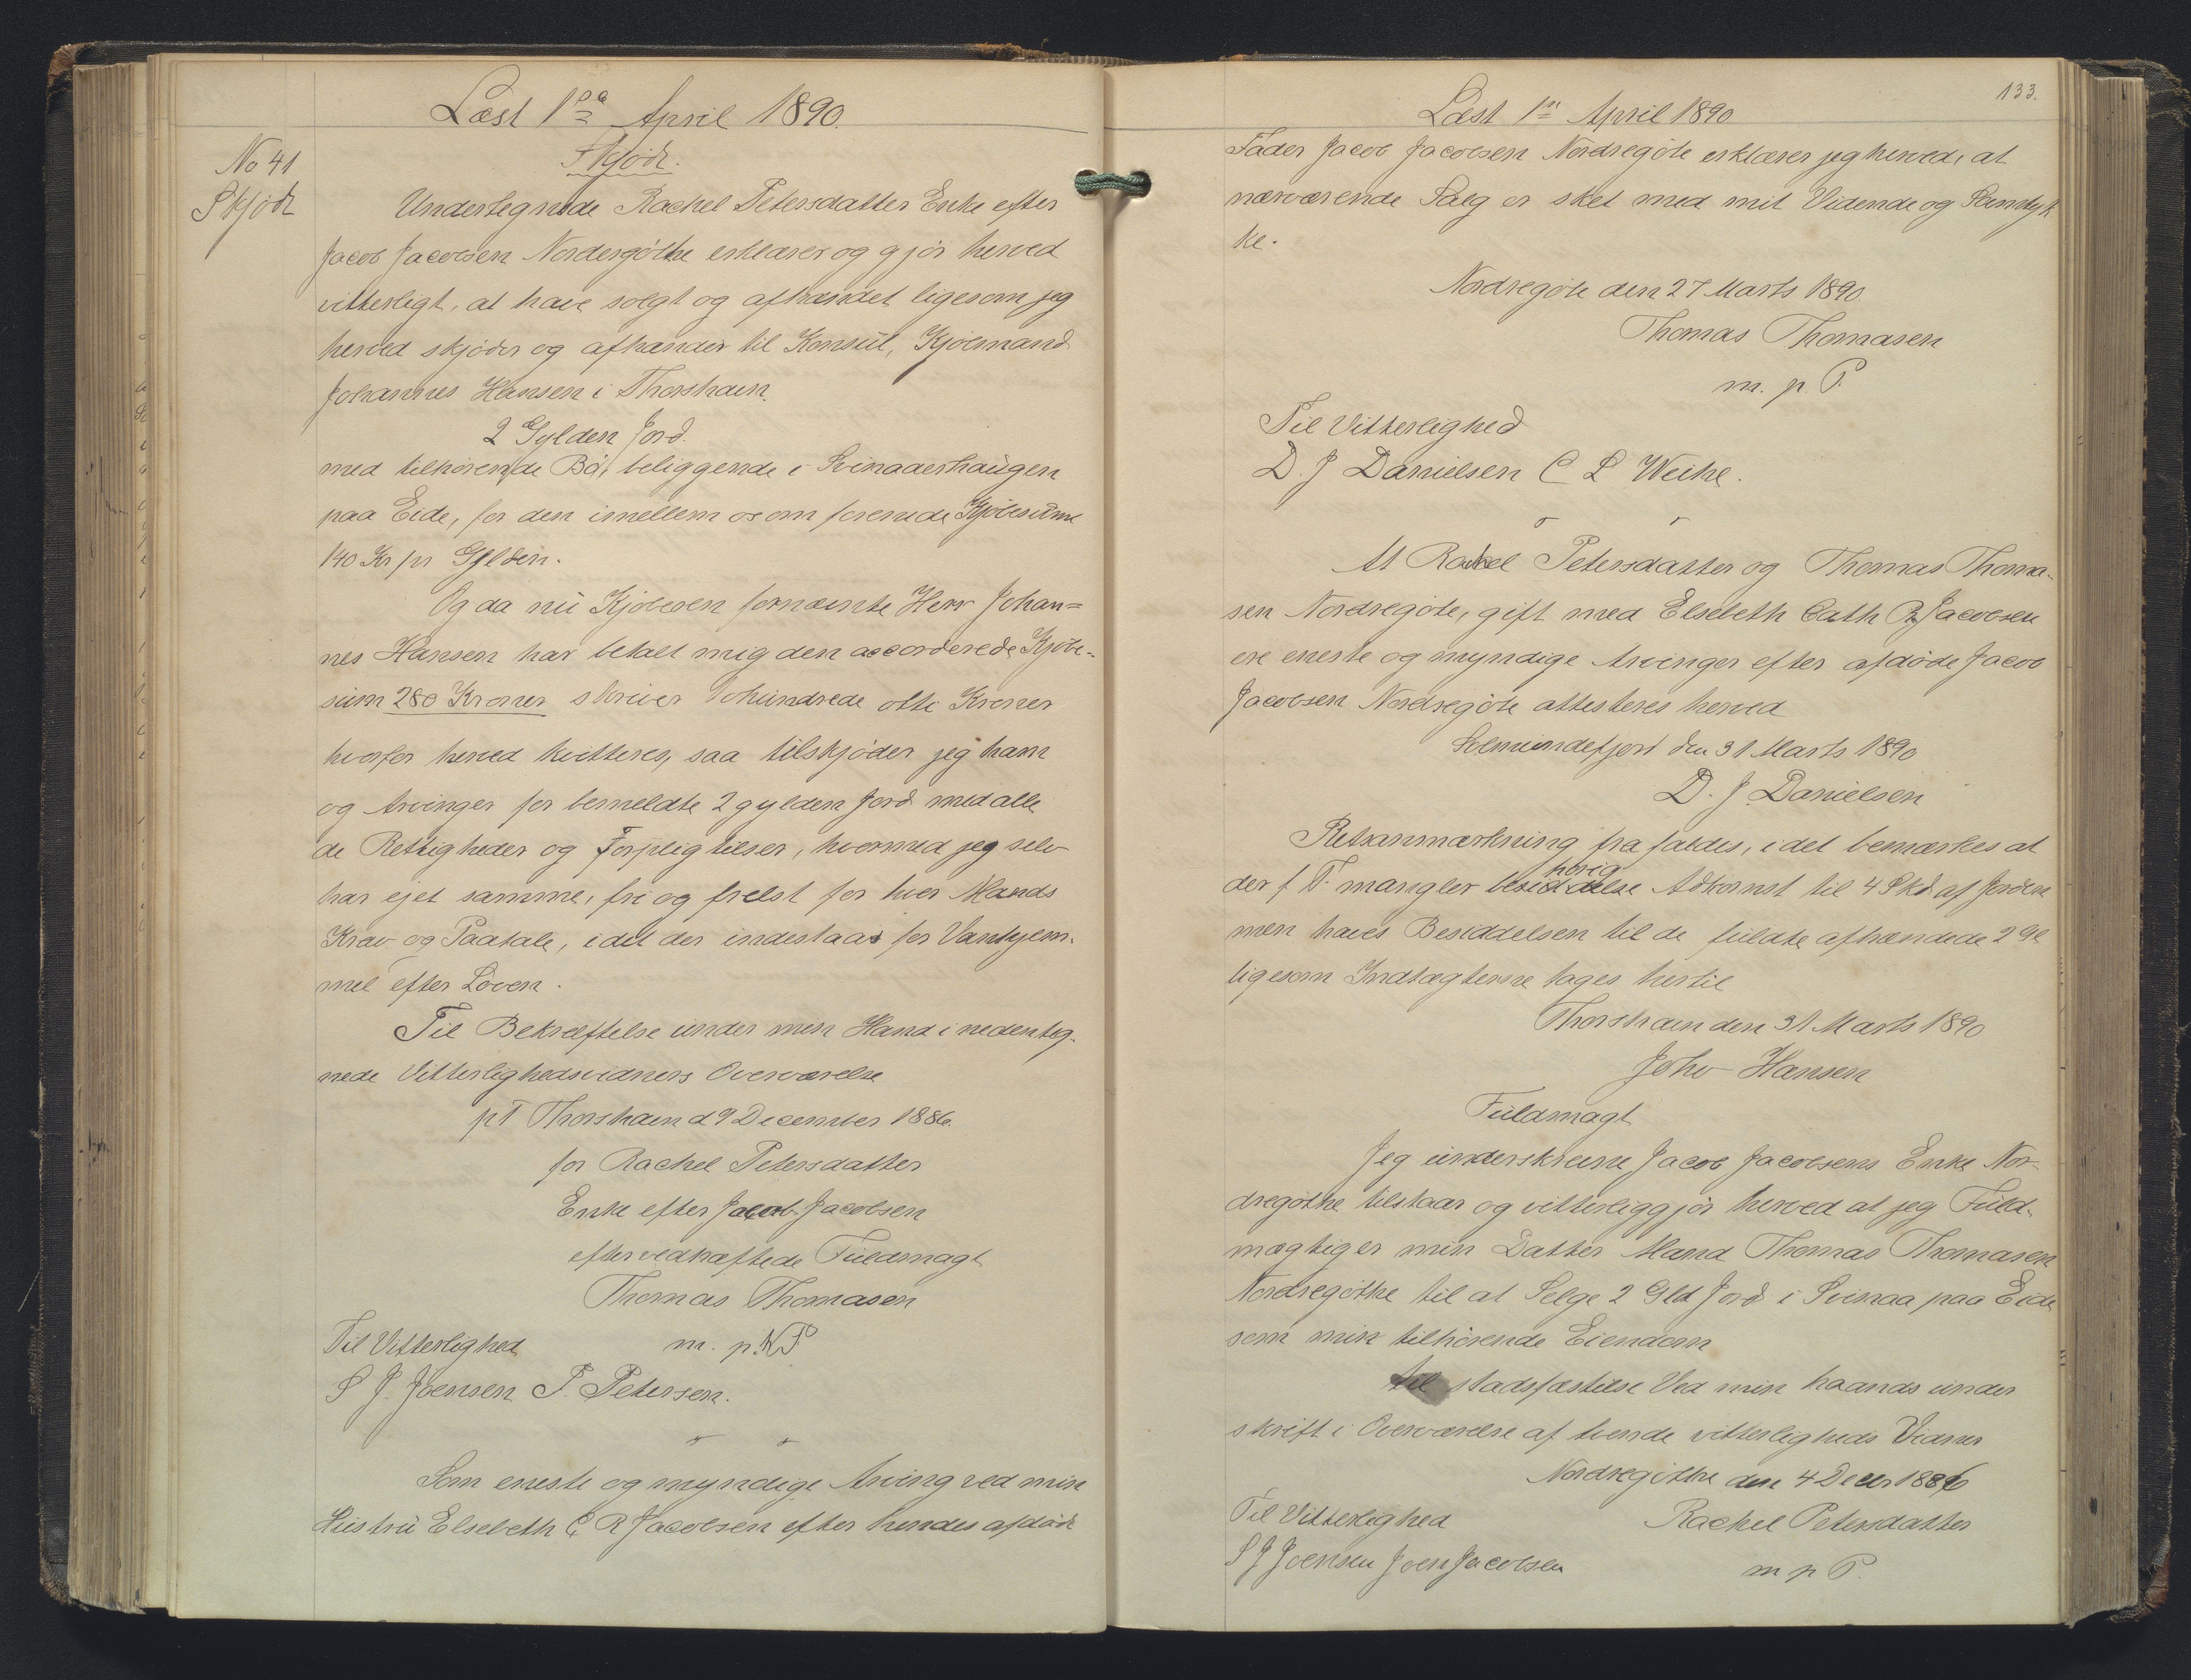 Læst 1ste April 1890.
No 41
Skjöde
Skjöde.
Undertegnede Rachel Petersdatter Enke efter
Jacob Jacobsen Nordergöthe erklærer og gjör herved
vitterligt, at have solgt og afhændet ligesom jeg
herved skjöder og afhænder til Konsul, Kjöbmand
Johannes Hansen i Thorshavn.
2 Gylden Jord.
med tilhörende Bö, beliggende i Svinaaerhaugen
paa Eide, for den imellem os om forenede Kjöbesum
140 Kr pr Gylden.
Og da nu Kjöberen fornævnte Herr Johan=
nes Hansen har betalt mig den accorderede Kjöbe-
sum 280 Kroner skriver tohundrede otti Kroner
hvorfor herved kvitteres, saa tilskjöder jeg ham
og Arvinger for bemeldte 2 gylden Jord med alle
de Rettigheder og Forpligtelser, hvormed jeg selv
har ejet samme, fri og frelst for hver Mands
Krav og Paatale, idet der indestaas for Vanhjem-
mel efter Loven.
Til Bekræftelse under min Haand i nedenteg-
nede Vitterlighedsvidners Overværelse
pT Thorshavn d 9 December 1886.
for Rachel Petersdatter
Enke efter Jacob Jacobsen
efter vedhæftede Fuldmagt
Thomas Thomasen
Til Vitterlighed m. p. P
S J. Joensen P. Petersen.
Som eneste og myndige Arving ved min
Hustru Elsebeth C. R Jacobsen efter hendes afdöde
133.
Læst 1ste April 1890
Fader Jacob Jacobsen Nordregöte erklærer jeg herved, at
nærværende Salg er sket med mit Vidende og Samtyk
ke.
Nordregöte den 27 Marts 1890.
Thomas Thomasen
m. p. P.
Til Vitterlighed
D. J Danielsen C L Weihe.
At Rachel Petersdatter og Thomas Thoma-
sen Nordregöte, gift med Elsebeth Cath R Jacobsen
ere eneste og myndige Arvinger efter afdöde Jacob
Jacobsen Nordregöte attesteres herved
Solmundefjord den 31 Marts 1890
D. J. Danielsen
Retsanmærkning fra faldes, idet bemærkes at
der f. T. mangler besiddelse hörig Adkomst til 4 Skd. af Jorden
men haves Besiddelsen til de fuldte afhændede 2 Gl
ligesom Indtægterne tages hertil
Thorshavn den 31 Marts 1890
Johs Hansen
Fuldmagt
Jeg underskrevne Jacob Jacobsens Enke Nor-
dregöthe tilstaar og vitterliggjör herved at jeg Fuld-
mægtiger min Datter Mand Thomas Thomasen
Nordregöthe til at Selge 2 Gld Jord i Svinaa paa Eide
som min tilhörende Eiendom
til stadsfæstelse Ved min haands under
skrift i Overværelse af tvende vitterligheds Vidner
Nordregöthe den 4 Decbr 1886
Til Vitterlighed Rachel Petersdatter
S J Joensen Joen Jacobsen m p P.